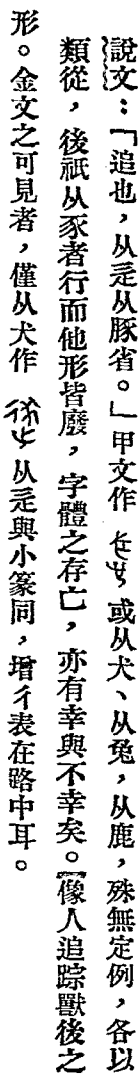 說文：「追也，从辵从豚省。」甲文作 或从犬、从兔，从鹿，殊無定例，各以
類從，後祇从豕者行而他形皆廢，字體之存亡，亦有幸與不幸矣。像人追踪獸後之
形。金文之可見者，僅从犬作 从辵與小篆同，增彳表在路中耳。